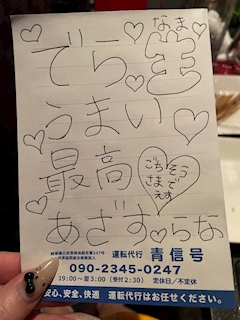 なま
でら生
うまい
最高
ごちそう
さまです
え
あざす
らな
運転代行 青信号
090-2345-0247
19:00〜翌3:00(受付2:30) 定休日/不定休
安心、安全、快適 運転代行はお任せください。